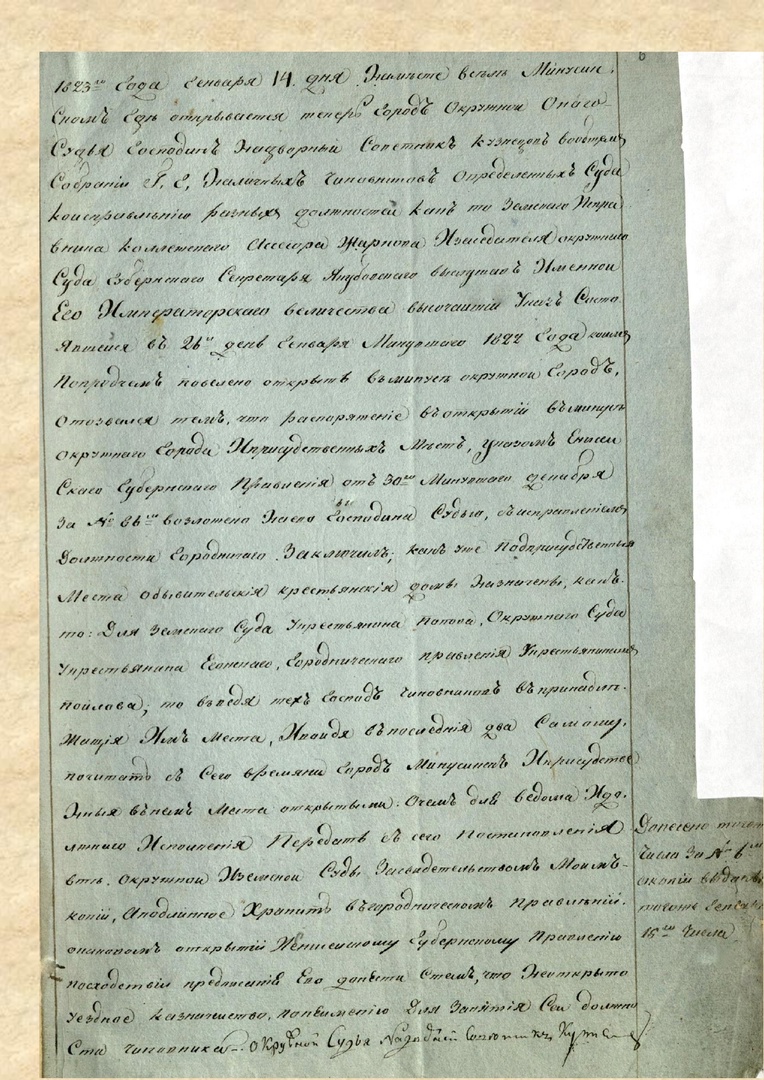 1823го Года Генваря 14. дня Нижлесте всемъ Минусин
скомъ Где открывается теперь Городъ Окружной Онаго
Судья Господинъ Надворный Советникъ Кузнецовъ вообтемъ
Собрании Г, Е, Наличныхъ Чиновниковъ Определенныхъ Сюда
коисправлѣнію разныхъ должностей какъ то Земскаго Испра
вника коллежскаго Ассесора Жаркова Изаседателя окружнаго
Суда Губернскаго Секретаря Якубовскаго выслушавъ Именной
Его Императорскаго величества высочайшій Указъ Состо
явшейся въ 26й день Генваря Минувшаго 1822 Года коимъ
Попротчемъ повелено открыть въминусѣ окружной Городъ,
отозвался темъ, что распоряженіе въоткрытіи въминусѣ
окружнаго Города Иприсудственныхъ Местъ, указомъ Енисей
Скаго Губернскаго Правленія отъ 30го Минувшаго декабря
За № 26мъ возложено Насего Господина Судью, съисправленіемъ
Должности Городничаго Заключилъ; какъ уже Подприсудственныя
Места обывательскія крестьянскія домы Назначены, какъ
то: Для Земскаго Суда Укрестьянина Попова, Окружнаго Суда
Укрестьянина, Городническаго правленія Укрестьянина
то введя техъ Господъ чиновниковъ въпринадле-
жащія Имъ Места, Ивойдя въпоследнія два Самому,
почитать съ Сего времяни Городъ Минусинскъ Иприсудстве
нныя внемъ Места открытыми. Очемъ для ведома Идо
лжнаго Исполнения Передать съ сего Постановленія
въ окружной Иземской Суды Засвидетельствомъ Моимъ
копіи, Аподлинное Хранить въгородническомъ Правленіи.
отаковомъ открытіи Иенисейскому Губернскому Правленію
посходствіи предписанія Его донести Стемъ, что Неоткрыто
уездное казначейство, понеименію Для Занятія Сей должно
Сти чиновника. Окружной Судья Надворной Советникъ Кузнецовъ
Донесено тогожъ
Числа За № 6мъ
акопіи выданы
Генваря
15го Числа